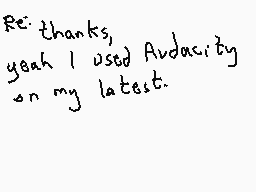 Re: thanks,
yeah I used Audacity
on my latest.